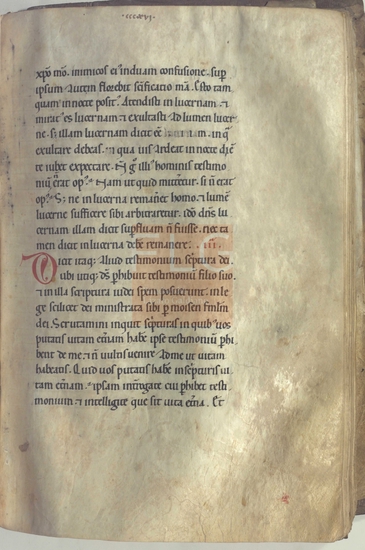 xpo meo. inimicos ei' induam confusione. sup
ipsum autem florebit scificatio mea. Esto tam
quam in nocte posit'. Attendisti in lucernam. ⁊
mirat' es lucernam ⁊ exultasti. Ad lumen lucer
ne. Si illam lucernam dicat ee in q
exultare debeas. In qua uis ardeat in nocte die
te iubet expectare. N g illi' hominis testimo
niu erat op'. Nam ut quid mitteret. si n erat
op'. S; ne in lucerna remanet homo. ⁊ lumen
lucerne sufficere sibi arbitraretur. ido dns lu
cernam illam dicat supfluam n fuisse. nec ta
men dicit in lucerna debe remanere.
Dicit itaq; Aliud testimonium scriptura dei
ubi utiq; ds phibuit testimoniu filio suo.
⁊ in illa scriptura iudei spem posuerunt. in le
ge scilicet dei ministrata sibi p moisen fmlm
dei. Scrutamini inquit scripturas in quib' uos
putatis uitam etnam habe. ipse testimoniu phi
bent de me. ⁊ n uultis uenire ad me ut uitam
habeatis. Quid uos putatis habe in scripturis ui
tam etnam. ipsam introgate cui phibet testi
monium ⁊ intelligite que sit uita etna. Et